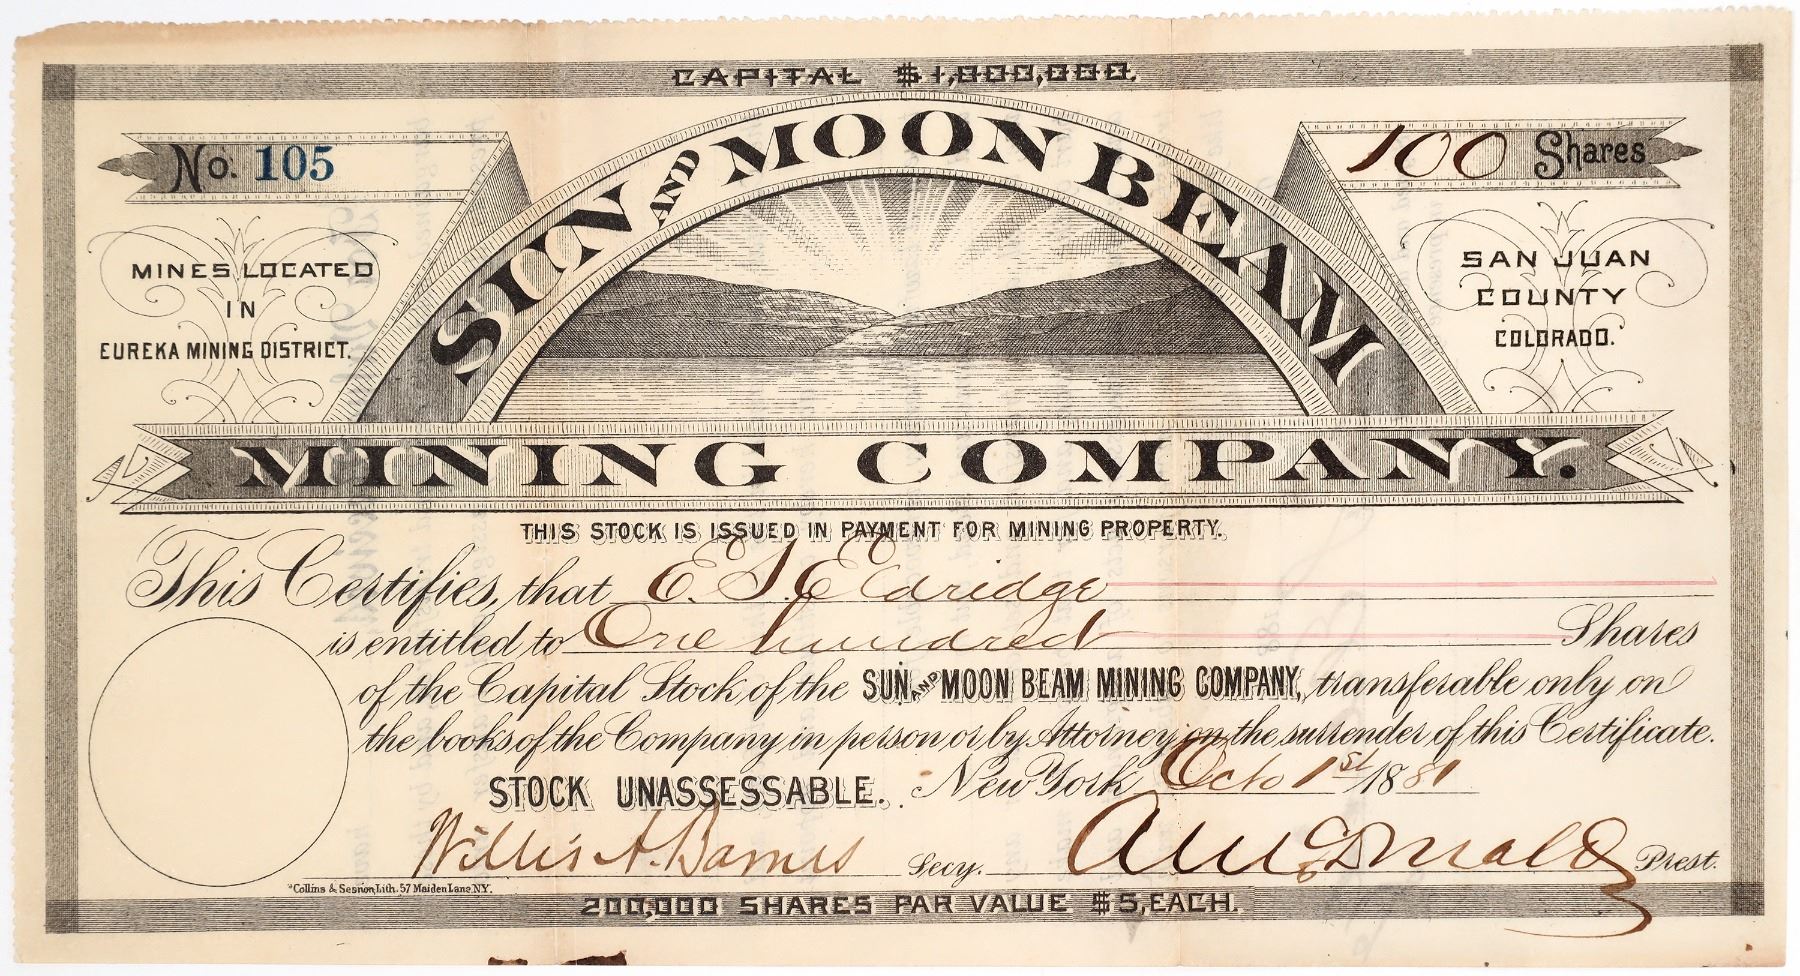 CAPITAL $1,000,000.
No. 105
100 Shares
SUN AND MOON BEAM
MINES LOCATED
IN
EUREKA MINING DISTRICT.
SAN JUAN
COUNTY
COLORADO.
MINING COMPANY.
THIS STOCK IS ISSUED IN PAYMENT FOR MINING PROPERTY.
This Certifies, that E. S. Eldridge
is entitled to One hundred Shares
of the Capital Stock of the SUN AND MOON BEAM MINING COMPANY, transferable only on
the books of the Company in person or by Attorney on the surrender of this Certificate.
STOCK UNASSESSABLE. New York Octo 1st 1881
Willis A. Barnes Secy. McDonald Prest.
Collins & Sesnon, Lith. 57 Maiden Lane, NY.
200,000 SHARES PAR VALUE $5, EACH.